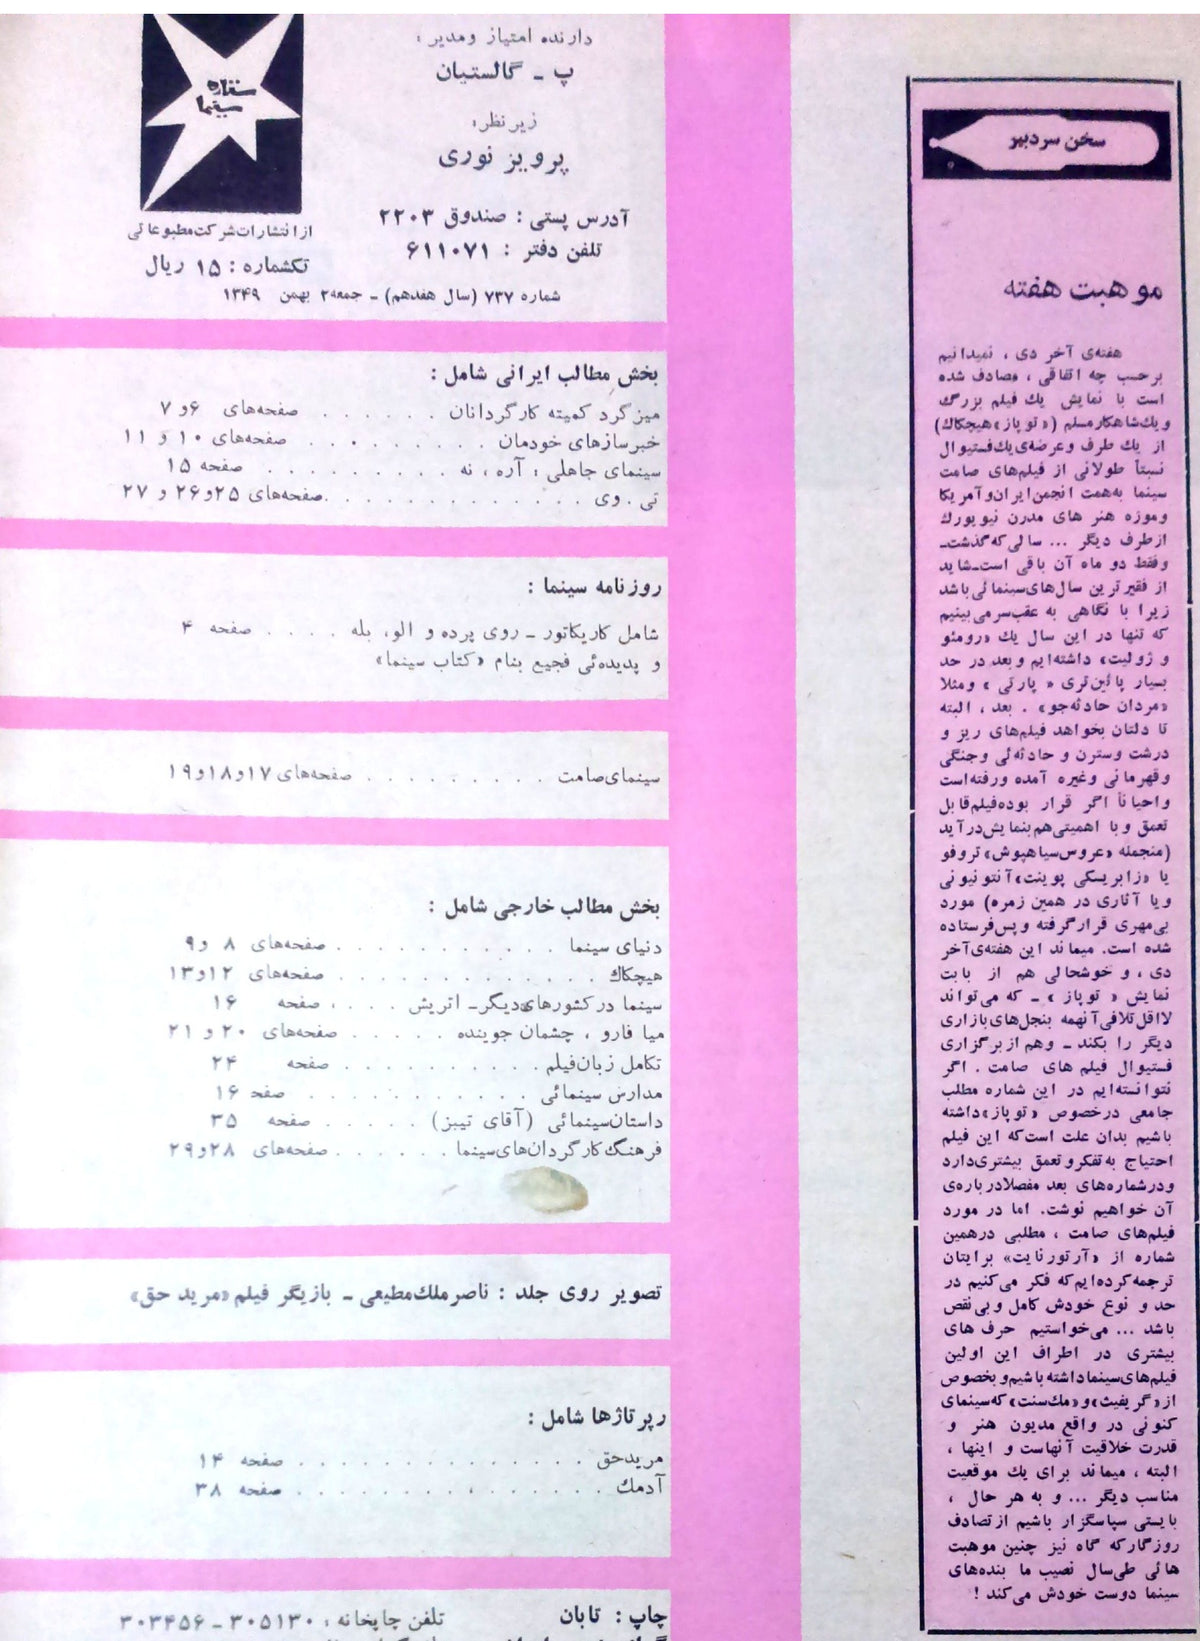 سخن سردبیر
موهبت هفته
هفته‌ی آخر دی ، نمیدانیم
برحسب چه اتفاقی ، مصادف شده
است با نمایش یك فیلم بزرگ
ویك شاهکار مسلم («توپاز» هیچکاك)
از یك طرف وعرضه‌ی یك فستیوال
نسبتاً طولانی از فیلم‌های صامت
سینما به‌همت انجمن ایران وآمریکا
وموزه هنر های مدرن نیویورك
ازطرف دیگر ... سالی که گذشت ـ
وفقط دو ماه آن باقی است ـ شاید
از فقیرترین سال‌های سینمائی باشد
زیرا با نگاهی به عقب‌سر می‌بینیم
که تنها در این سال یك «رومئو
و ژولیت» داشته‌ایم وبعد در حد
بسیار پائین‌تری « پارتی » ومثلا
«مردان حادثه‌جو» . بعد ، البته
تا دلتان بخواهد فیلم‌های ریز و
درشت وسترن و حادثه‌ئی وجنگی
وقهرمانی وغیره آمده ورفته‌است
واحیاناً اگر قرار بوده فیلم قابل
تعمق وبا اهمیتی هم بنمایش درآید
(منجمله «عروس سیاهپوش» تروفو
یا «زابریسکی پوینت» آنتونیونی
ویا آثاری در همین زمره) مورد
بی‌مهری قرارگرفته و پس‌فرستاده
شده است. میماند این هفته‌ی‌آخر
دی ، و خوشحالی هم از بابت
نمایش « توپاز » ـ که می‌تواند
لااقل تلافی آنهمه بنجل‌های بازاری
دیگر را بکند ـ وهم از برگزاری
فستیوال فیلم های صامت . اگر
نتوانسته‌ایم در این شماره مطلب
جامعی درخصوص «توپاز» داشته
باشیم بدان علت است‌که این فیلم
احتیاج به تفکر و تعمق بیشتری‌دارد
ودرشماره‌های بعد مفصلا درباره‌ی
آن خواهیم نوشت. اما در مورد
فیلم‌های صامت ، مطلبی درهمین
شماره از «آرتور نایت» برایتان
ترجمه‌کرده‌ایم‌که فکر می‌کنیم در
حد و نوع خودش کامل وبی‌نقص
باشد ... می‌خواستیم حرف های
بیشتری در اطراف این اولین
فیلم‌های سینما داشته باشیم و بخصوص
از «گریفیث» و «مك‌سنت» که‌سینمای
کنونی در واقع مدیون هنر و
قدرت خلاقیت آنهاست و اینها ،
البته ، میماند برای یك موقعیت
مناسب دیگر ... و به هر حال ،
بایستی سپاسگزار باشیم از تصادف
روزگارکه گاه نیز چنین موهبت
هائی طی‌سال نصیب ما بنده‌های
سینما دوست خودش می‌کند !
دارنده امتیاز ومدیر :
پ ـ گالستیان
زیرنظر:
پرویز نوری
آدرس پستی : صندوق ۲۲۰۳
تلفن دفتر : ۶۱۱۰۷۱
ستاره
سینما
ازانتشارات شرکت مطبوعاتی
تکشماره : ۱۵ ریال
شماره ۷۳۷ (سال هفدهم) ـ جمعه ۲ بهمن ۱۳۴۹
بخش مطالب ایرانی شامل :
میزگرد کمیته کارگردانان . . . . . . صفحه‌های ۶و ۷
خبرسازهای خودمان . . . . . . . صفحه‌های ۱۰ و ۱۱
سینمای جاهلی : آره ، نه . . . . . . . . . صفحه ۱۵
تی . وی . . . . . . . . . . صفحه‌های ۲۵و۲۶ و ۲۷
روزنامه سینما :
شامل کاریکاتور ـ روی پرده و الو، بله . . . . صفحه ۴
و پدیده‌ئی فجیع بنام «کتاب سینما»
سینمای‌صامت . . . . . . . . صفحه‌های ۱۷و۱۸و۱۹
بخش مطالب خارجی شامل :
دنیای سینما . . . . . . . . . . . صفحه‌های ۸ و۹
هیچکاك . . . . . . . . . . . صفحه‌های ۱۲و۱۳
سینما در کشورهای‌دیگر ـ اتریش . . . . صفحه ۱۶
میا فارو ، چشمان جوینده . . . . . صفحه‌های ۲۰ و ۲۱
تکامل زبان‌فیلم . . . . . . . . . . صفحه ۲۴
مدارس سینمائی . . . . . . . . . . . صفحه ۱۶
داستان‌سینمائی (آقای تیبز) . . . . . صفحه ۳۵
فرهنگ کارگردان‌های‌سینما . . . . . صفحه‌های ۲۸و۲۹
تصویر روی جلد : ناصر ملك‌مطیعی ـ بازیگر فیلم «مرید حق»
رپرتاژها شامل :
مریدحق . . . . . . . . . . . . . صفحه ۱۴
آدمك . . . . . . . . . . . . . صفحه ۳۸
چاپ : تابان
تلفن چاپخانه : ۳۰۵۱۳۰ ـ ۳۰۳۴۵۶